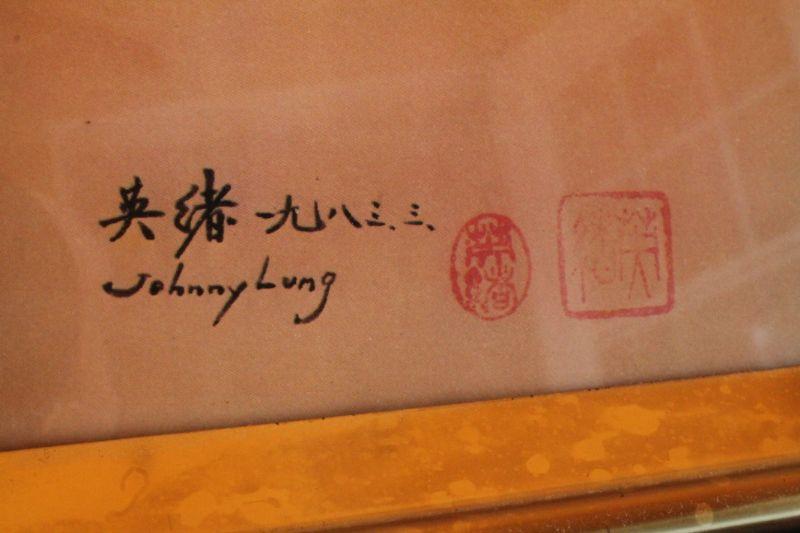 英緒 一九八三、三、
Johnny Lung
英緒